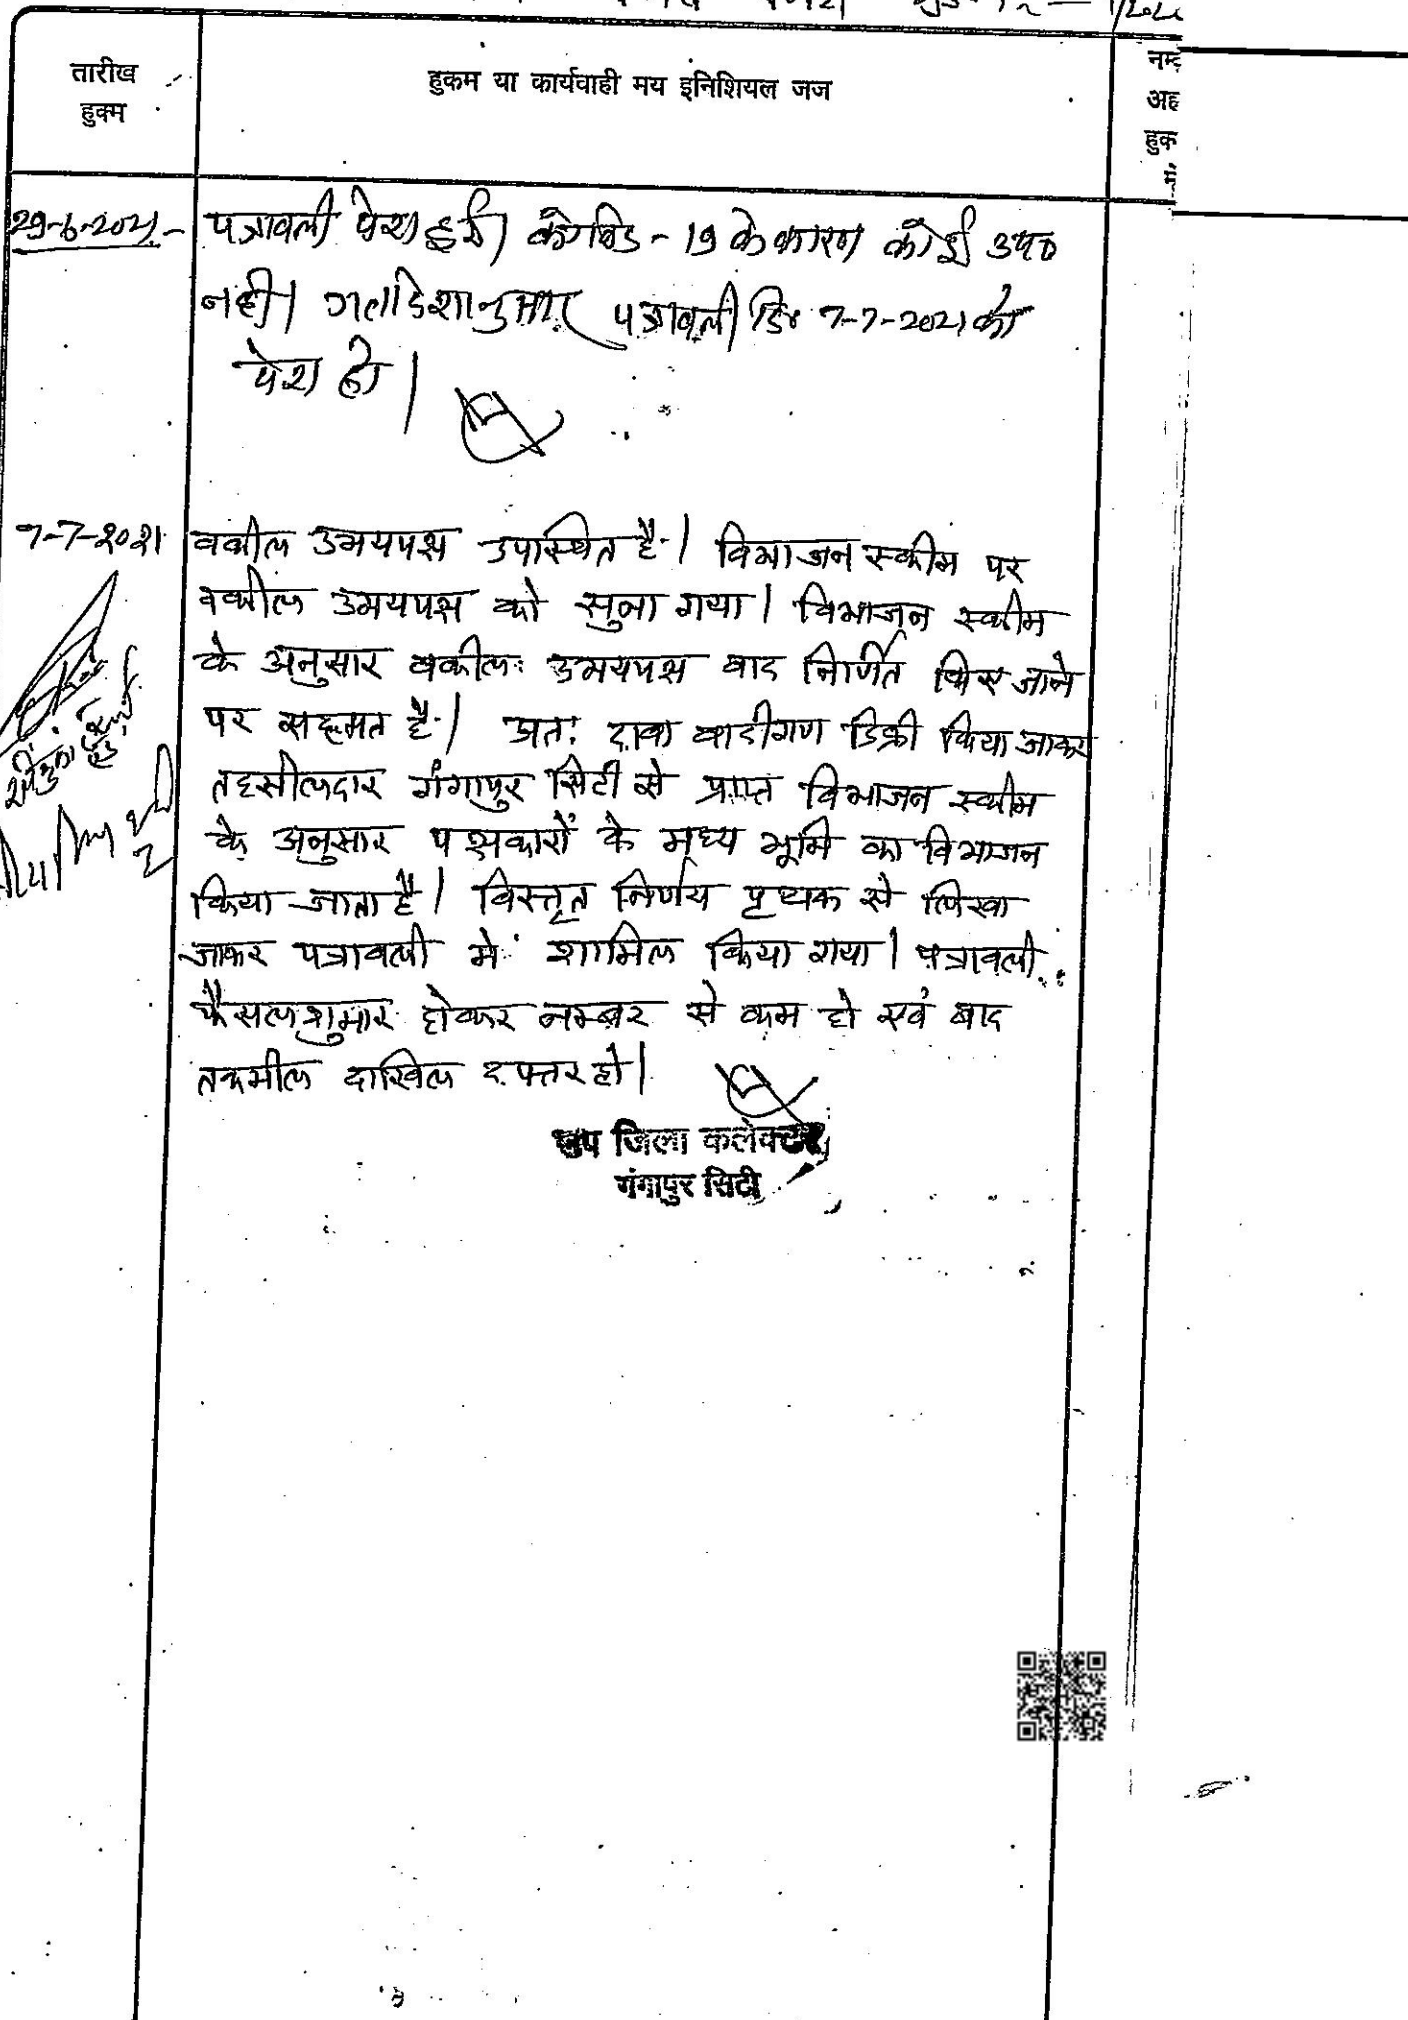 तारीख
हुक्म
हुकम या कार्यवाही मय इनिशियल जज
नम्ब
अह
हुक
में
29-6-2021 - पत्रावली पेश हुई। कोविड-19 के कारण कोई उप०
नहीं। गतादेशानुसार पत्रावली दि० 7-7-2021 को
पेश हो।
7-7-2021 वकील उभयपक्ष उपस्थित है। विभाजन स्कीम पर
वकील उभयपक्ष को सुना गया। विभाजन स्कीम
के अनुसार वकील उभयपक्ष वाद निर्णित किए जाने
पर सहमत है। अतः दावा वादीगण डिक्री किया जाकर
तहसीलदार गंगापुर सिटी से प्राप्त विभाजन स्कीम
के अनुसार पक्षकारों के मध्य भूमि का विभाजन
किया जाता है। विस्तृत निर्णय पृथक से लिखा
जाकर पत्रावली में शामिल किया गया। पत्रावली
फैसल शुमार होकर नम्बर से कम हो एवं बाद
तकमील दाखिल दफ्तर हो।
उप जिला कलेक्टर
गंगापुर सिटी